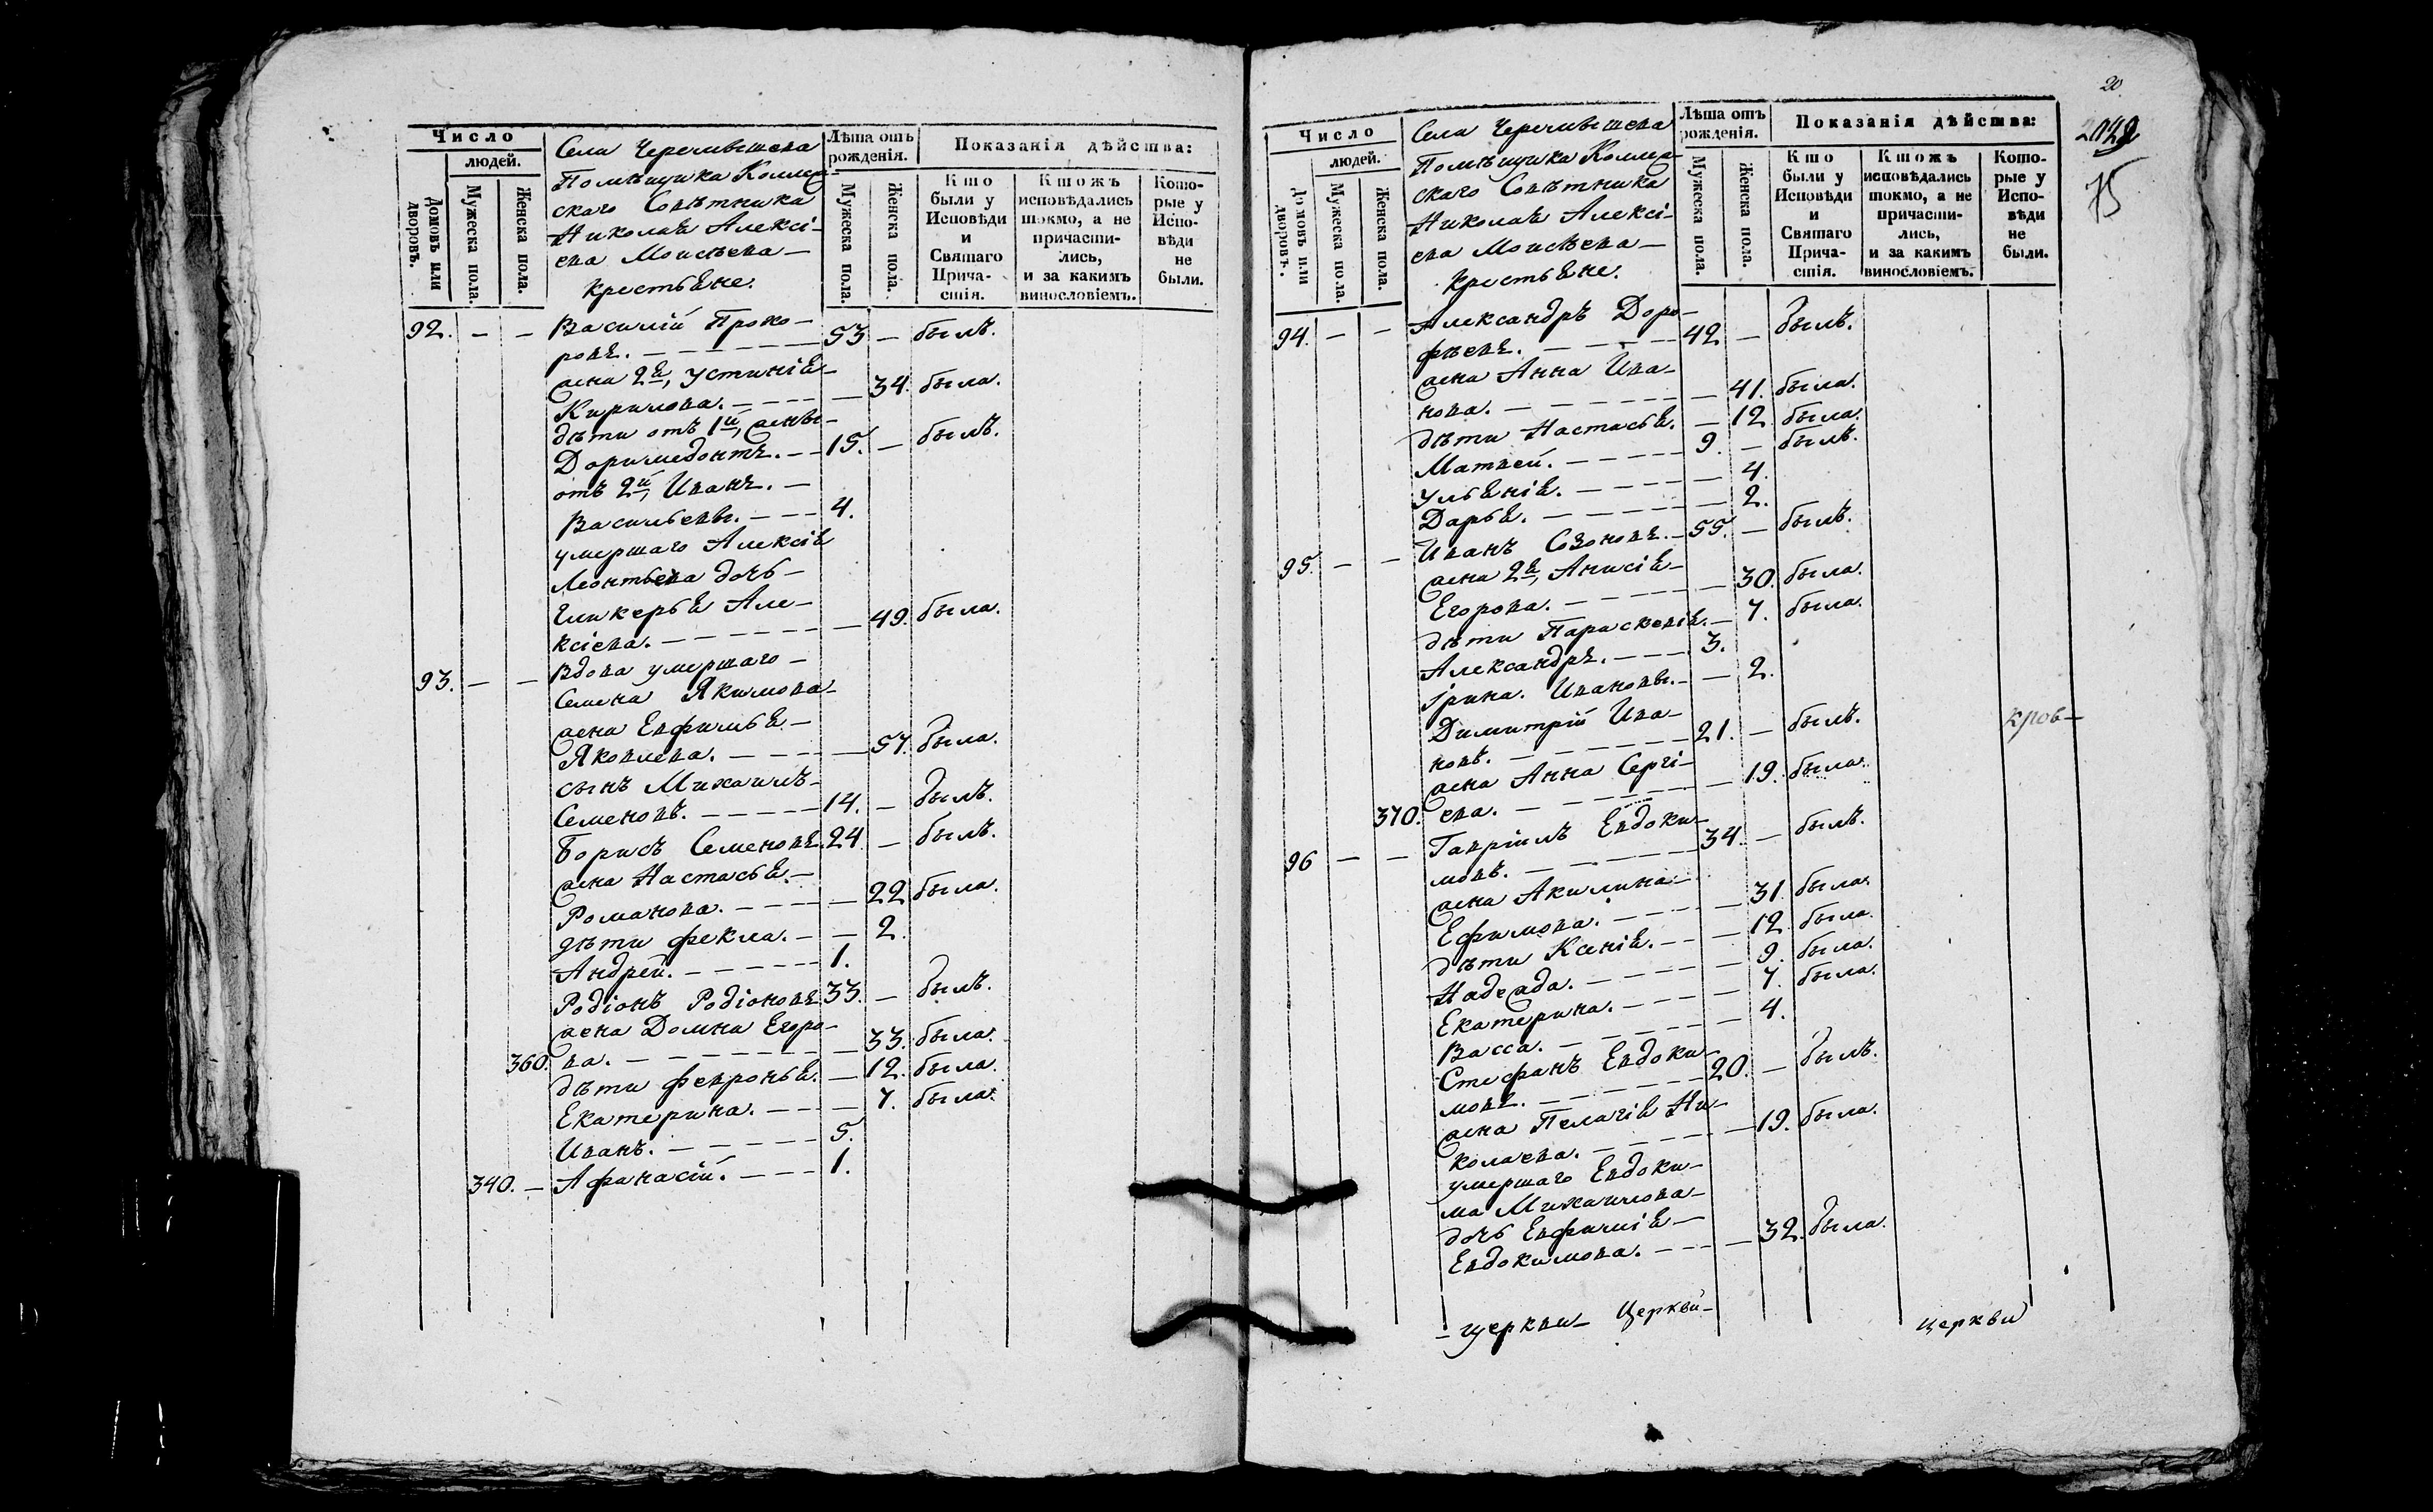 Число
людей.
Домовъ или дворовъ.
Мужеска пола.
Женска пола.
Села
Помѣщика Колле-
скаго Совѣтника
Николая Алексѣ-
ева Моисѣева
крестьяне.
Лѣта отъ рожденія.
Мужеска пола.
Женска пола.
Показанія дѣйства:
Кто были у Исповѣди и Святаго Прича-стія.
Ктожъ исповѣдались токмо, а не причасти-лись, и за какимъ винословіемъ.
Кото-рые у Испо-вѣди не были.
92. — — Василій Прохо-
ровъ. — 53 — былъ.
жена 2я, Устинія
Кирилова. — — 34. была.
дѣти отъ 1й, жены
Доримедонтъ. — 15. — былъ.
отъ 2й, Иванъ. —
Васильевы. — 4.
умершаго Алексія
Леонтьева дочь —
Гликерья Але-
ксіева. — — 49. была.
93. — — Вдова умершаго —
Семена Якимова
жена Евфимья —
Яковлева. — — 57. была.
сынъ Михаилъ
Семеновъ. — 14. — былъ.
Борисъ Семеновъ. 24 — былъ.
жена Настасья. —
Романова. — — 22 была.
дѣти Фекла. — — 2.
Андрей. — 1.
Родіонъ Родіоновъ 33. — былъ.
жена Домна Егоро-
360. ва. — — 33. была.
дѣти Февронья. — 12. была.
Екатерина. — — 7. была.
Иванъ. — 5.
340. — Афанасій. — 1.
20
75
Число
людей.
Домовъ или дворовъ.
Мужеска пола.
Женска пола.
Села
Помѣщика Колле-
скаго Совѣтника
Николая Алексѣ-
ева Моисѣева —
крестьяне.
Лѣта отъ рожденія.
Мужеска пола.
Женска пола.
Показанія дѣйства:
Кто были у Исповѣди и Святаго Прича-стія.
Ктожъ исповѣдались токмо, а не причасти-лись, и за какимъ винословіемъ.
Кото-рые у Испо-вѣди не были.
94. — — Александръ Доро-
фѣевъ. — 42 — былъ.
жена Анна Ива-
нова. — — 41. была.
дѣти Настасья. — 12 была.
Матвей. — 9. — былъ.
Ульянія. — — 4.
Дарья. — — 2.
95. — — Иванъ Созоновъ. — 55. — былъ.
жена 2я, Анисія —
Егорова. — — 30. была.
дѣти Параскевія. — 7. была.
Александръ. — 3.
Ірина. Ивановы. — — 2.
Димитрій Ива-
новъ. — 21. — былъ.
кров—
жена Анна Сергі-
370. ева. — — 19. была.
96 — — Гавріилъ Евдоки-
мовъ. — 34. — былъ.
жена Акилина —
Ефимова. — — 31 была.
дѣти Ксенія. — — 12 была.
Надежда. — — 9. была.
Екатерина. — — 7. была.
Васса. — — 4.
Стефанъ Евдоки-
мовъ. — 20. — былъ.
жена Пелагія Ни-
колаева. — — 19. была.
умершаго Евдоки-
ма Михаилова —
дочь Евфимія —
Евдокимова. — — 32. была.
— церкви — Церкви —
церкви